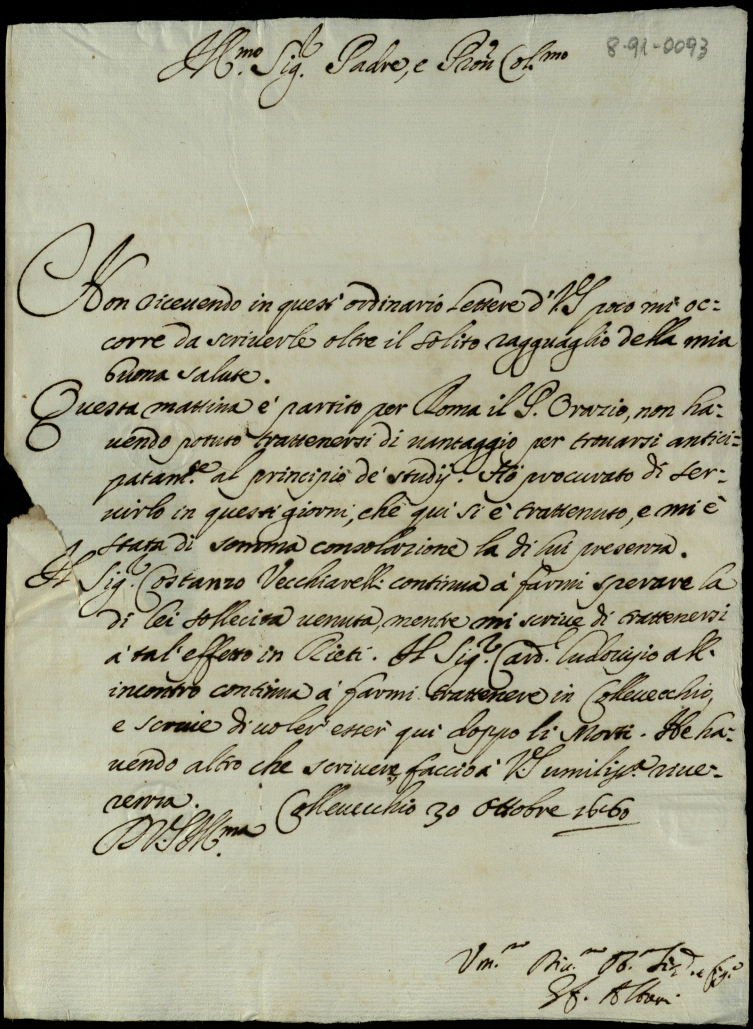 8-91-0093
Ill.mo Sig.r Padre, e Pron Col.mo
Non riceuendo in quest' ordinario lettere di V.S. poco mi oc=
corre da scriuerle oltre il solito ragguaglio della mia
buona salute.
Questa mattina è partito per Roma il P. Orazio, non ha=
uendo potuto trattenersi di uantaggio per trouarsi antici=
patam.te al principio de' studij. Hò procurato di ser=
uirlo in questi giorni, che qui si è trattenuto, e mi è
stata di somma consolazione la di lui presenza.
Il Sig.r Costanzo Vecchiarelli continua à farmi sperare la
di lei sollecita uenuta, mentre mi scriue di trattenersi
à tal' effetto in Rieti. Il Sig.r Card. Ludouisio all'
incontro continua à farmi trattenere in Colleuecchio,
e scriue di uoler' esser qui doppo li Morti. Ne ha=
uendo altro che scriuere, faccio à V.S. umiliss.a riue=
renza. Colleuecchio 30 Ottobre 1660
Di V.S. Ill.ma
Um.mo Ob.mo e
Albani